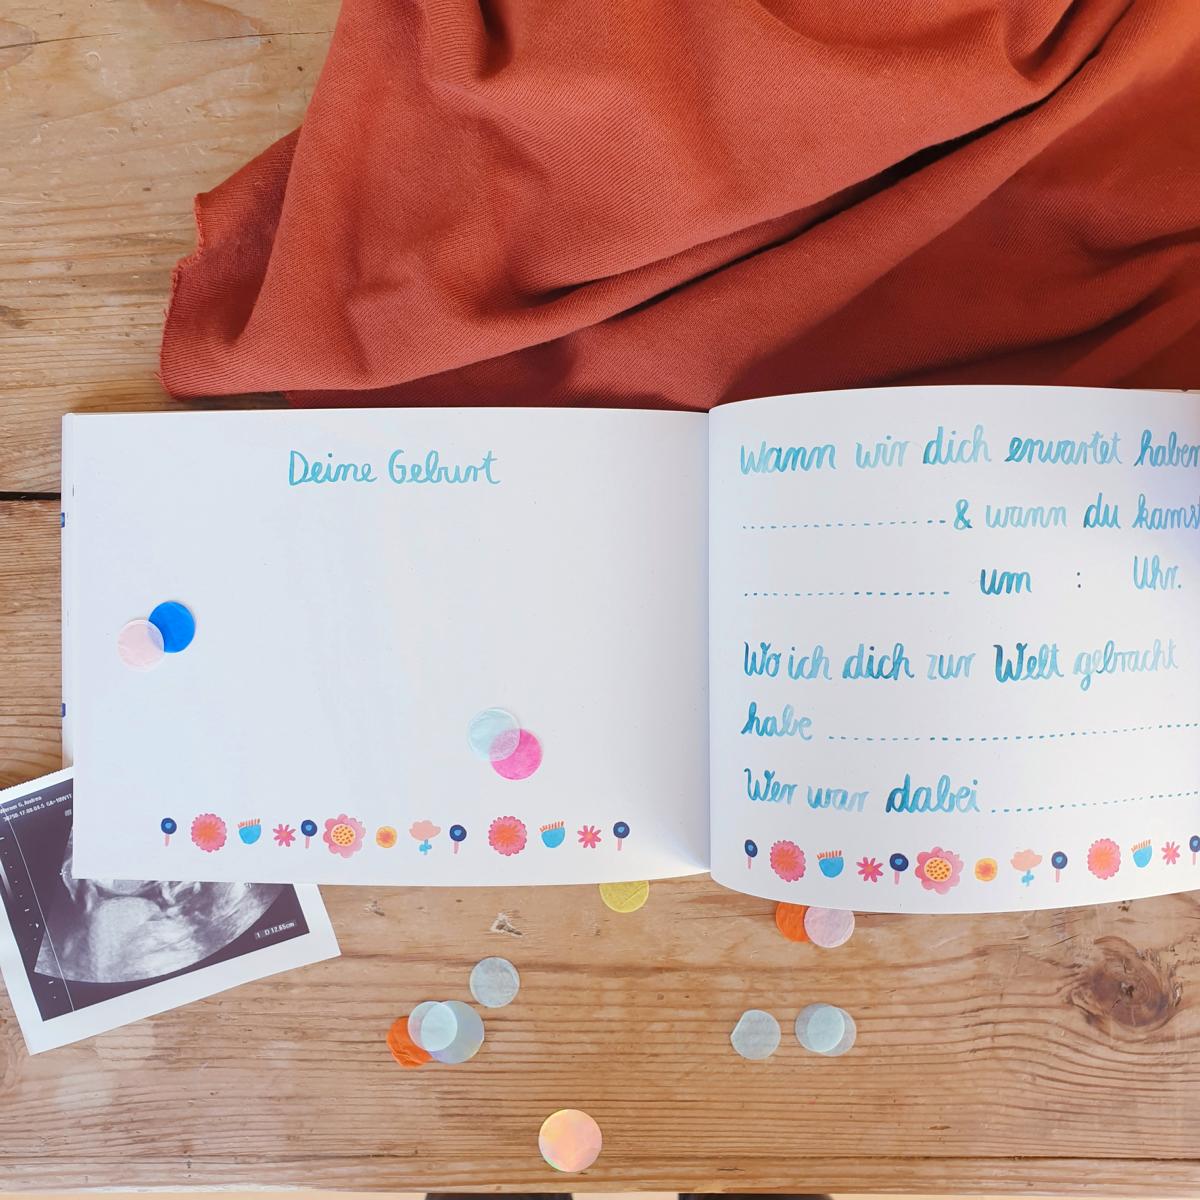 Deine Geburt
Wann wir dich erwartet haben
.......................& wann du kamst
....................... um : Uhr.
Wo ich dich zur Welt gebracht
habe ..........................................
Wer war dabei ........................
G. Andrea
1 D 12.85cm